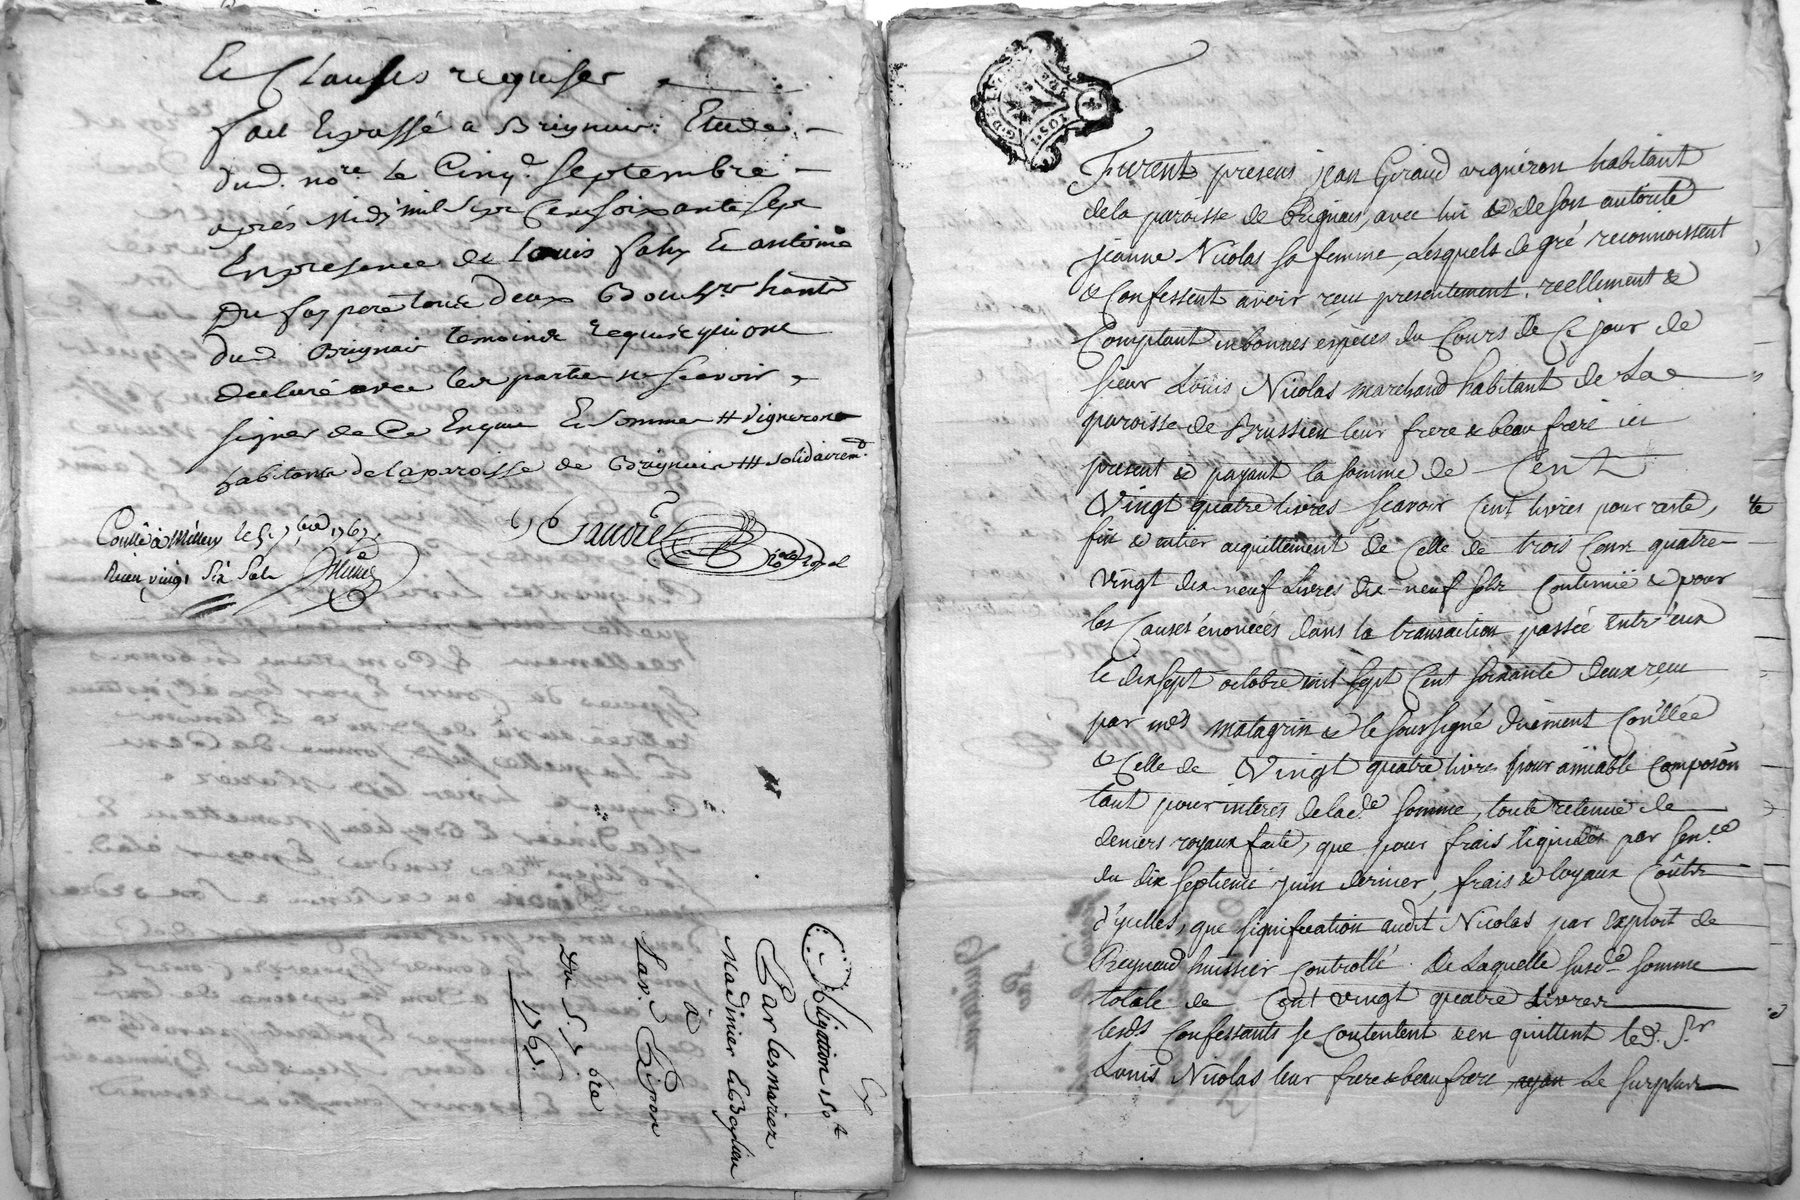 & Clauses requises
fait & passé a Brignais Etude
dud. nore le Cinq. septembre
après Midy mil sept Cens soixante sept
En presence de Louis & antoine
tous deux habts
dud. Brignais temoins requis qui ont
declaré avec les parties ne scavoir
signer de Ce Enquis & sommes # vignerons
habitants de la paroisse de Brignais ## solidairemt
Conllé à Millery le 5. 7bre 1767
Reçu vingt six sols
Nore Royal
Obligation 150 #
Par les mariez
Madinier
à
Du 5. 7bre
1767.
Furent presens jean Giraud vigneron habitant
de la paroisse de Brignais, avec lui & de son autorité
jeanne Nicolas sa femme, Lesquels de gré reconnoissent
& Confessent avoir reçu presentement, reellement &
Comptant en bonnes espèces du Cours de Ce jour de
sieur Loüis Nicolas marchand habitant de La
paroisse de Brussieu leur frere & beau frere ici
present & payant la somme de Cent
Vingt quatre livres scavoir Cent livres pour reste,
fin & entier acquittement de Celle de trois Cens quatre
vingt dix neuf Livres dix-neuf sols Contenüe & pour
les Causes énoncées dans la transaction passée entr'eux
le dix sept octobre mil sept Cent soixante deux reçu
par mes matagrin & le soussigné düement Con'llée
& Celle de Vingt quatre livres pour amiable Composon
tant pour interes de lade somme, toute retenüe de
deniers royaux faite, que pour frais liquidés par sence
du dix septieme juin dernier, frais & loyaux Coûts
d'yculles, que signification audit Nicolas par exploit de
Reynaud huissier Controllé. De Laquelle susde somme
totale de Cent vingt quatre Livres
lesds Confessants se Contentent & en quittent led. Sr
Loüis Nicolas leur frere & beau frere, Le surplus